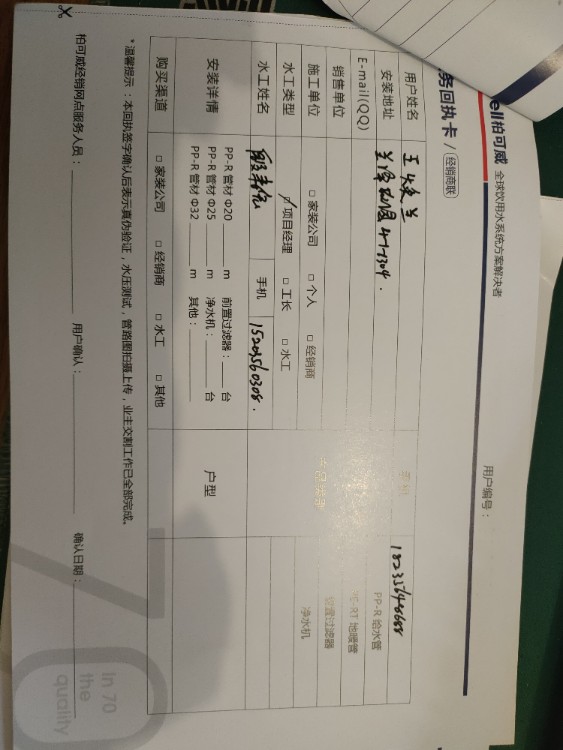 ell柏可威 全球饮用水系统方案解决者
务回执卡 / 经销商联
用户编号：
用户姓名 王 兰 手机
安装地址 4-1-1304.
E-mail(QQ) PP-R 给水管
销售单位 PE-RT 地暖管
施工单位 □ 家装公司 □ 个人 □ 经销商 前置过滤器
水工类型 项目经理 □ 工长 □ 水工 净水机
水工姓名 手机
安装详情 PP-R 管材 Φ20 m 前置过滤器： 台 户型
PP-R 管材 Φ25 m 净水机： 台
PP-R 管材 Φ32 m 其他：
购买渠道 □ 家装公司 □ 经销商 □ 水工 □ 其他
*温馨提示：本回执签字确认后表示真伪验证，水压测试，管路图拍摄上传，业主交割工作已全部完成。
柏可威经销网点服务人员： 用户确认： 确认日期：
In 70
the
quality